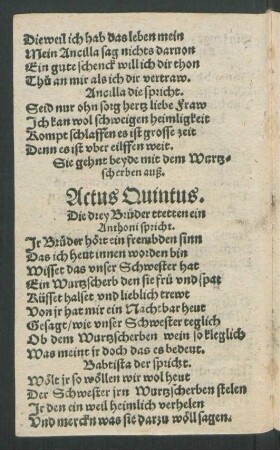 Dieweil ich hab das leben mein
Mein Ancilla sag nichts daruon
Ein gute schenck will ich dir thon
Thů an mir als ich dir vertraw.
Ancilla die spricht.
Seid nur ohn sorg hertz liebe Fraw
Ich kan wol schweigen heimligkeit
Kompt schlaffen es ist grosse zeit
Denn es ist vber eilffen weit.
Sie gehnt beyde mit dem Wurtz-
scherben auß.
Actus Quintus.
Die drey Brüder tretten ein
Anthoni spricht.
Ir Brüder hört ein frembden sinn
Das ich heut innen worden bin
Wisset das vnser Schwester hat
Ein Wurtzscherb den sie frü vnd spat
Küsset halset vnd lieblich trewt
Von jr hat mir ein Nachtbar heut
Gesagt/ wie vnser Schwester teglich
Ob dem Wurtzscherben wein so kleglich
Was meint jr doch das es bedeut.
Babtista der spricht.
Wölt jr so wöllen wir wol heut
Der Schwester jrn Wurtzscherben stelen
Ir den ein weil heimlich verhelen
Vnd merckn was sie darzu wöll sagen.